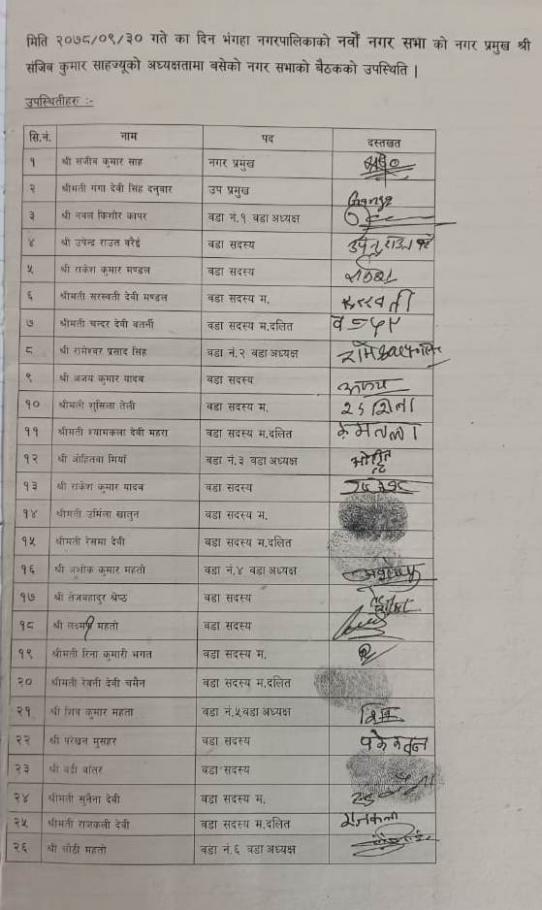 मिति २०७८/०९/३० गते का दिन भंगहा नगरपालिकाको नवौं नगर सभा को नगर प्रमुख श्री
संजिब कुमार साहज्यूको अध्यक्षतामा बसेको नगर सभाको बैठकको उपस्थिति |
उपस्थितीहरु :-
सि.नं. नाम पद दस्तखत
१ श्री संजीव कुमार साह नगर प्रमुख
२ श्रीमती गंगा देवी सिंह दनुवार उप प्रमुख Ganga
३ श्री नवल किशोर कापर वडा नं.१ वडा अध्यक्ष
४ श्री उपेन्द्र राउत वरैई वडा सदस्य
५ श्री राकेश कुमार मण्डल वडा सदस्य
६ श्रीमती सरस्वती देवी मण्डल वडा सदस्य म. सरस्वती
७ श्रीमती चन्दर देवी वतर्नी वडा सदस्य म.दलित
८ श्री रामेश्वर प्रसाद सिंह वडा नं.२ वडा अध्यक्ष
९ श्री अजय कुमार यादव वडा सदस्य अजय
१० श्रीमती शुसिला तेली वडा सदस्य म.
११ श्रीमती श्यामकला देवी महरा वडा सदस्य म.दलित
१२ श्री ओहितवा मियाँ वडा नं.३ वडा अध्यक्ष
१३ श्री राकेश कुमार यादव वडा सदस्य
१४ श्रीमती उर्मिला खातुन वडा सदस्य म.
१५ श्रीमती रेसमा देवी वडा सदस्य म.दलित
१६ श्री अशोक कुमार महतो वडा नं.४ वडा अध्यक्ष
१७ श्री तेजबहादुर श्रेष्ठ वडा सदस्य
१८ श्री लक्ष्मी महतो वडा सदस्य
१९ श्रीमती रिना कुमारी भगत वडा सदस्य म.
२० श्रीमती रेवनी देवी चमैन वडा सदस्य म.दलित
२१ श्री शिव कुमार महतो वडा नं.५ वडा अध्यक्ष
२२ श्री परेखन मुसहर वडा सदस्य
२३ श्री वडी वांतर वडा सदस्य
२४ श्रीमती सुनैना देवी वडा सदस्य म.
२५ श्रीमती राजकली देवी वडा सदस्य म.दलित राजकली
२६ श्री सोठी महतो वडा नं.६ वडा अध्यक्ष